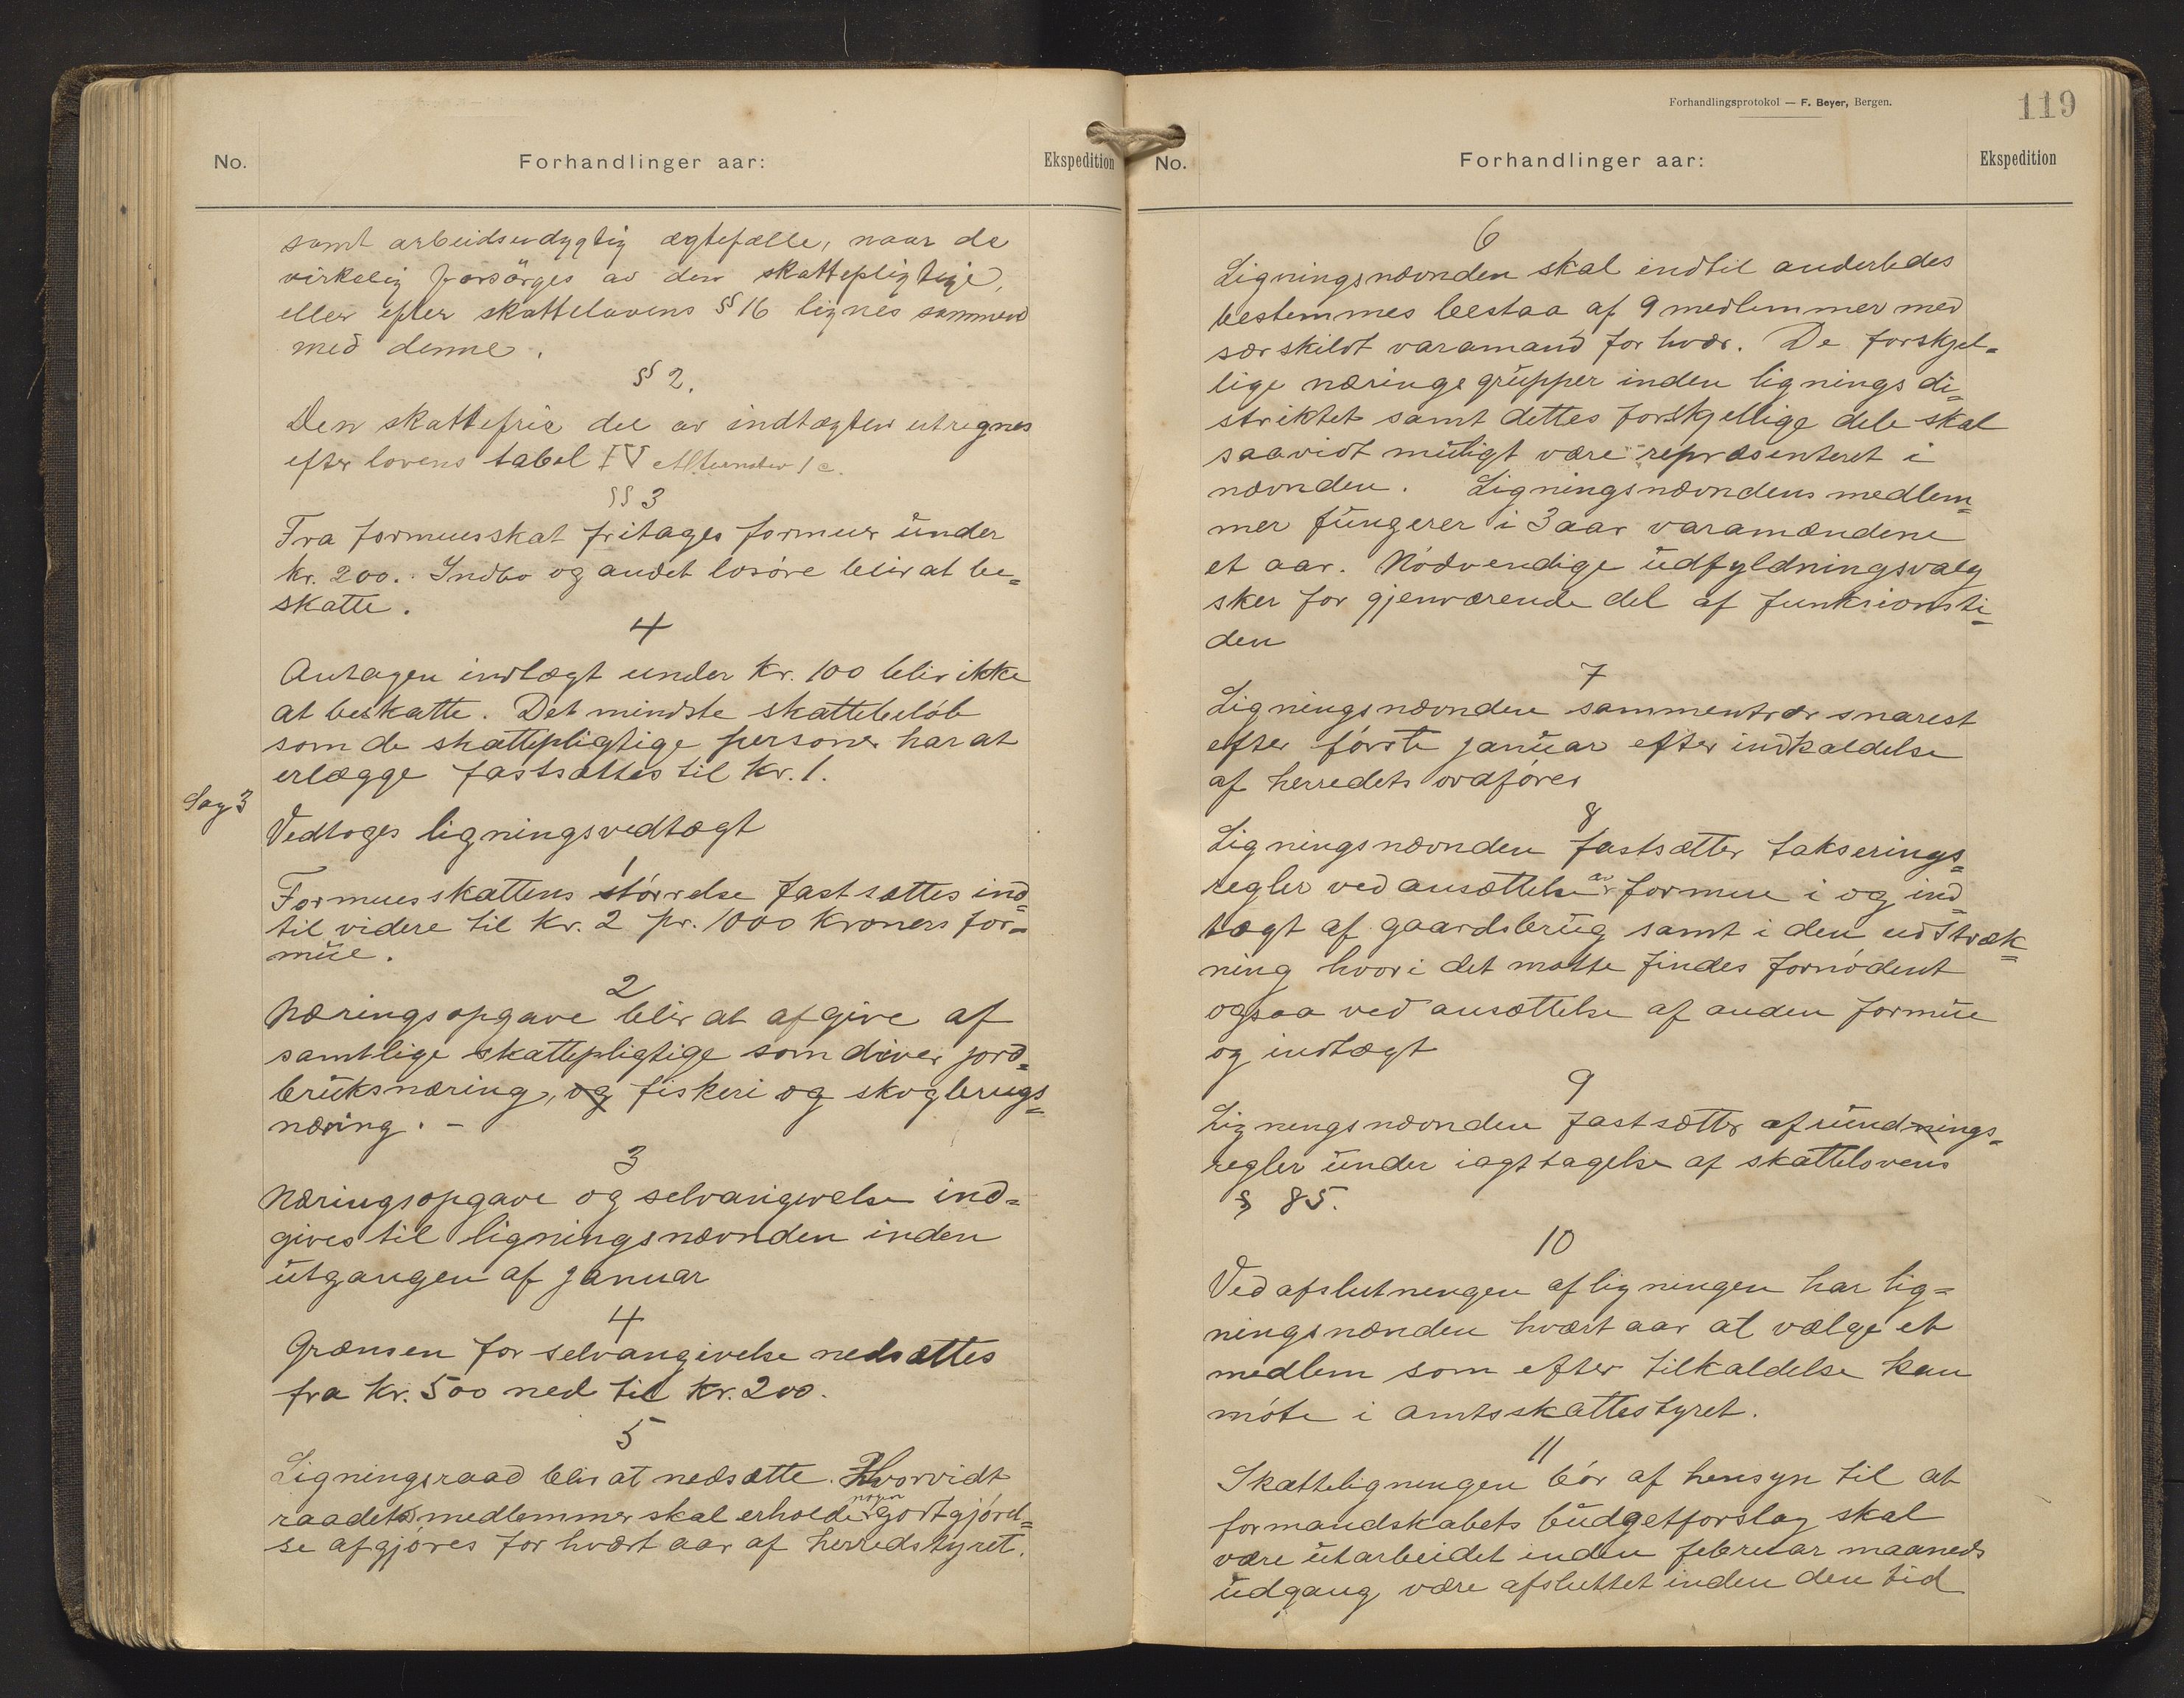 No.
Forhandlinger aar:
Ekspedition
samt arbeidsudygtig ægtefælle, naar de
virkelig forsörges av den skattepligtige,
eller efter skattelovens §§ 16 lignes sammen
med denne.
§§ 2.
Den skattefrie del av indtægten utregnes
efter lovens tabel IV Alternativ 1 c.
§§ 3
Fra formuesskat fritages formuer under
kr. 200. Indbo og andet losöre blir at be=
skatte.
4
Antagen indtægt under kr. 100 blir ikke
at beskatte. Det mindste skattebelöb
som de skattepligtige personer har at
erlægge fastsættes til kr. 1.
Sag 3
Vedtoges ligningsvedtægt
1
Formuesskattens störrelse fastsættes ind=
til videre til kr. 2 pr. 1000 kroners for=
mue.
2
Næringsopgave blir at afgive af
samtlige skattepligtige som driver jord=
bruksnæring, og fiskeri og skogbrugs=
næring. -
3
Næringsopgave og selvangivelse ind=
gives til ligningsnævnden inden
utgangen af januar
4
Grænsen for selvangivelse nedsættes
fra kr. 500 ned til kr. 200.
5
Ligningsraad blir at nedsætte. Hvorvidt
raadets medlemmer skal erholde nogen godtgjörel=
se afgjöres for hvært aar af herredstyret.
Forhandlingsprotokol — F. Beyer, Bergen.
119
No.
Forhandlinger aar:
Ekspedition
6
Ligningsnævnden skal indtil anderledes
bestemmes bestaa af 9 medlemmer med
særskildt varamand for hvær. De forskjel=
lige næringsgrupper inden lignings di=
striktet samt dettes forskjellige dele skal
saavidt muligt være repræsenteret i
nævnden. Ligningsnævndens medlem=
mer fungerer i 3 aar varamændene
et aar. Nödvendige udfyldningsvalg
sker for gjenværende del af funksionsti=
den
7
Ligningsnævnden sammentrær snarest
efter förste januar efter indkaldelse
af herredets ordförer
8
Ligningsnævnden fastsætter takserings=
regler ved ansættelse av formue i og ind=
tægt af gaardsbrug samt i den udstræk=
ning hvori det maatte findes fornödent
ogsaa ved ansættelse af anden formue
og indtægt
9
Ligningsnævnden fastsætter afrundnings=
regler under iagttagelse af skattelovens
§ 85.
10
Ved afslutningen af ligningen har lig=
ningsnænden hvært aar at vælge et
medlem som efter tilkaldelse kan
möte i amtsskattestyret.
11
Skatteligningen bör af hensyn til at
formandskabets budgetforslag skal
være utarbeidet inden februar maaneds
udgang være afsluttet inden den tid